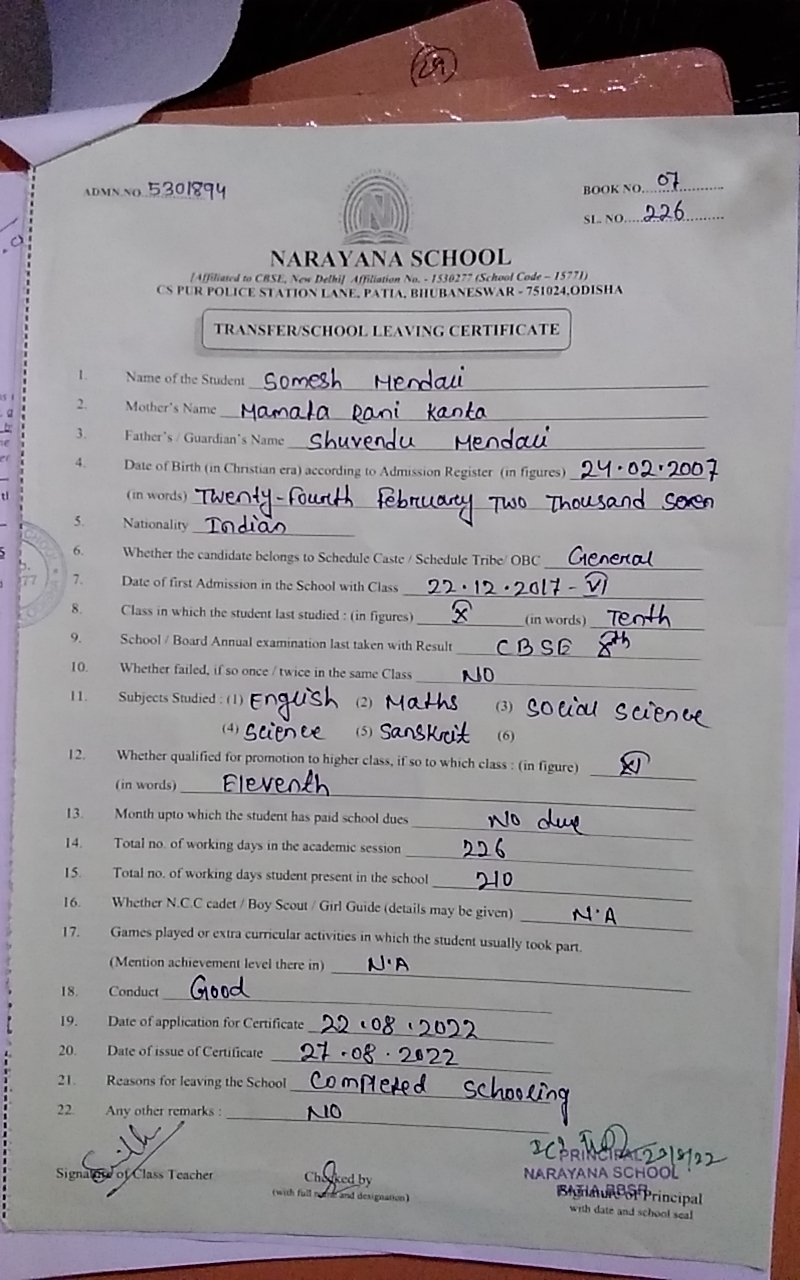 29
ADMN.NO. 5301894
BOOK NO. 07
SL. NO. 226
N
NARAYANA SCHOOL
[Affiliated to CBSE, New Delhi] Affiliation No. - 1530277 (School Code – 15771)
CS PUR POLICE STATION LANE, PATIA, BHUBANESWAR - 751024,ODISHA
TRANSFER/SCHOOL LEAVING CERTIFICATE
1. Name of the Student Somesh Mendali
2. Mother's Name Mamata Rani Kanta
3. Father's / Guardian's Name Shuvendu Mendali
4. Date of Birth (in Christian era) according to Admission Register (in figures) 24.02.2007
(in words) Twenty-Fourth February Two Thousand Seven
5. Nationality Indian
6. Whether the candidate belongs to Schedule Caste / Schedule Tribe/ OBC General
7. Date of first Admission in the School with Class 22.12.2017 - VI
8. Class in which the student last studied : (in figures) X (in words) Tenth
9. School / Board Annual examination last taken with Result CBSE 8th
10. Whether failed, if so once / twice in the same Class NO
11. Subjects Studied : (1) English (2) Maths (3) Social Science
(4) Science (5) Sanskrit (6)
12. Whether qualified for promotion to higher class, if so to which class : (in figure) XI
(in words) Eleventh
13. Month upto which the student has paid school dues No due
14. Total no. of working days in the academic session 226
15. Total no. of working days student present in the school 210
16. Whether N.C.C cadet / Boy Scout / Girl Guide (details may be given) N.A
17. Games played or extra curricular activities in which the student usually took part.
(Mention achievement level there in) N.A
18. Conduct Good
19. Date of application for Certificate 22.08.2022
20. Date of issue of Certificate 27.08.2022
21. Reasons for leaving the School Completed schooling
22. Any other remarks : NO
Signature of Class Teacher
Checked by
(with full name and designation)
PRINCIPAL
NARAYANA SCHOOL
PATIA, BBSR
Signature of Principal
with date and school seal